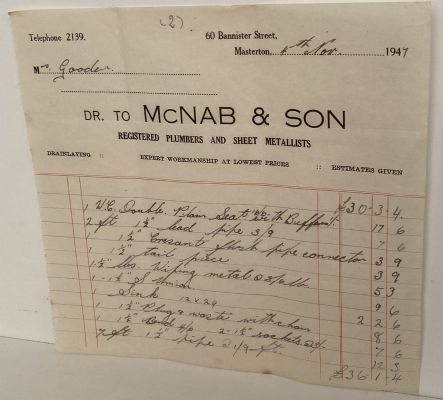 (2).
Telephone 2139.
60 Bannister Street,
Masterton, 4th Nov. 1947
Mrs. Gooder
DR. TO McNAB & SON
REGISTERED PLUMBERS AND SHEET METALLISTS
DRAINLAYING :: EXPERT WORKMANSHIP AT LOWEST PRICES :: ESTIMATES GIVEN
£30-3-4.
1 W.C. Double Plain Seat with Buffers 17 6
2 ft 1½" lead pipe 3/9 7 6
1 1½" flush pipe connector 3 9
1 1½" tail piece 3 9
1½ lbs. Wiping metal @ 3/6 lb 5 3
1 - 1½" S Union 9 6
1 Sink 12 x 24 2 2 6
1 1½" Plug & waste with chain 8 6
1 1½" Bend 2-1½" sockets 7 6
7 ft 1½" pipe 2 1/9 ft. 12 3
£36-1-4